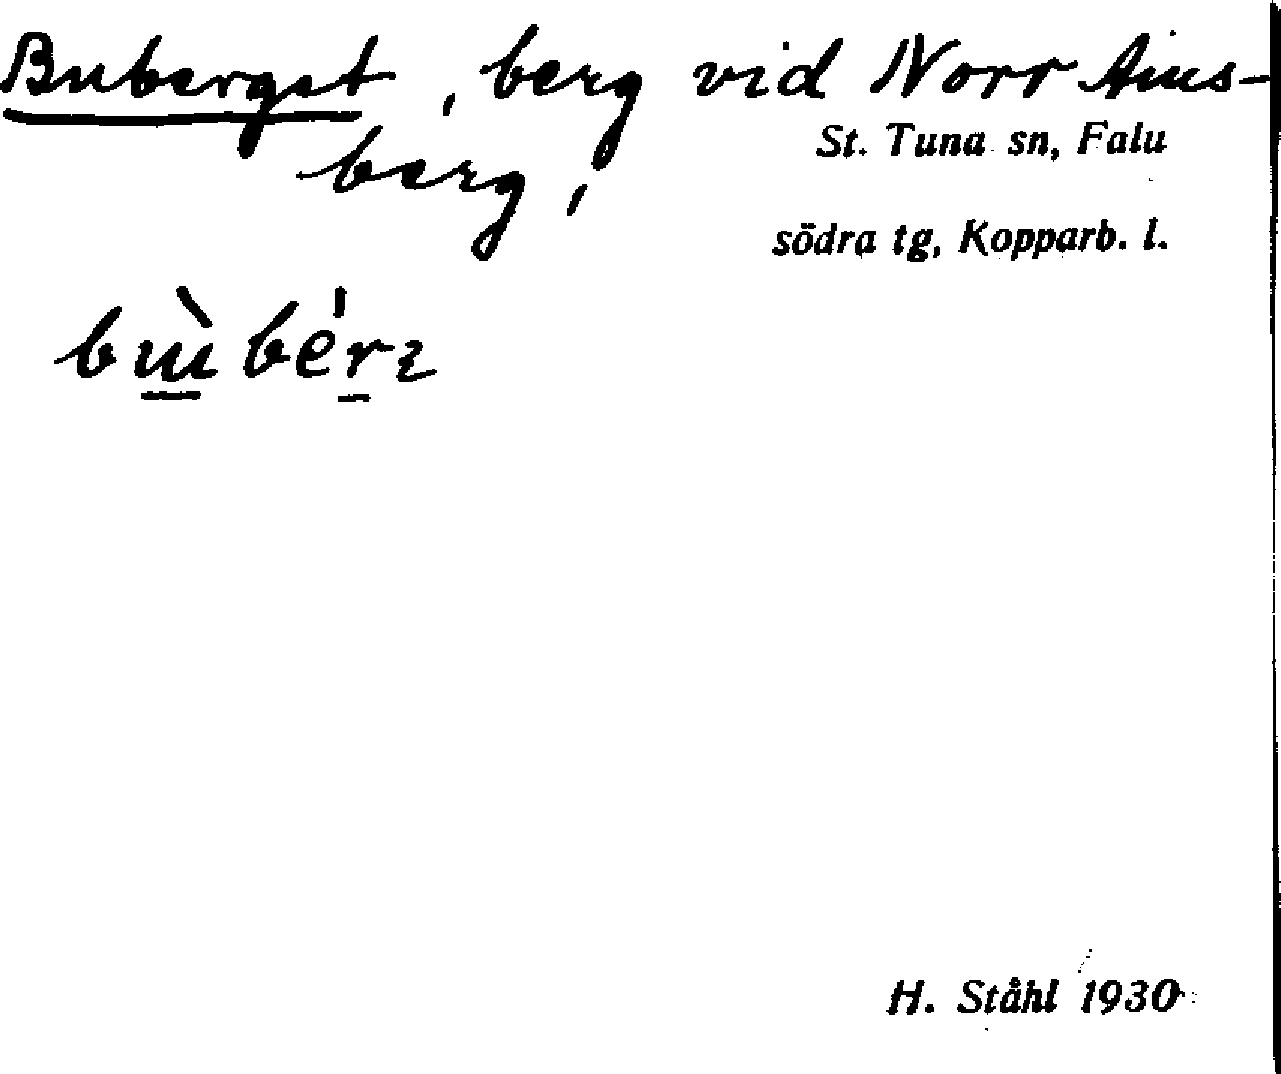 Buberget, berg vid Norr Ams-
St. Tuna sn, Falu
berg,
södra tg, Kopparb. l.
H. Ståhl 1930